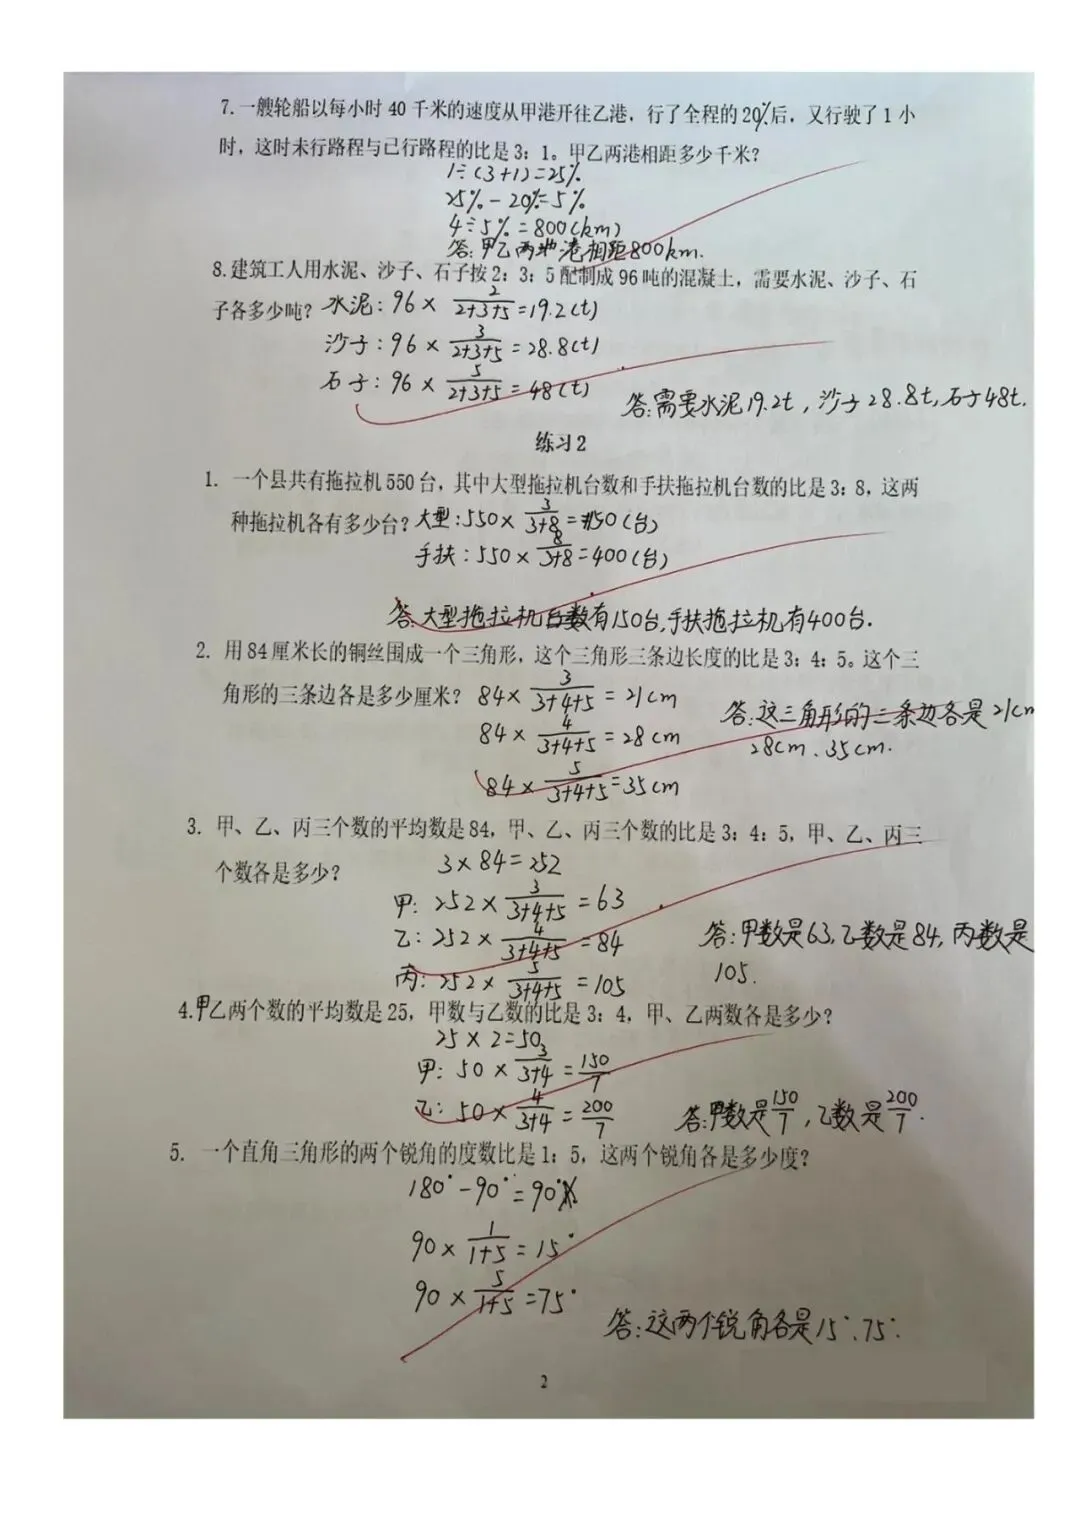 7. 一艘轮船以每小时 40 千米的速度从甲港开往乙港，行了全程的20%后，又行驶了1小
时，这时未行路程与已行路程的比是3：1。甲乙两港相距多少千米？
1÷(3+1)=25%
25%-20%=5%
4÷5%=800(km)
答:甲乙两港相距800km.
8.建筑工人用水泥、沙子、石子按2：3：5配制成96吨的混凝土，需要水泥、沙子、石
子各多少吨？ 水泥:96×2/(2+3+5)=19.2(t)
沙子:96×3/(2+3+5)=28.8(t)
石子:96×5/(2+3+5)=48(t)
答:需要水泥19.2t,沙子28.8t,石子48t.
练习2
1. 一个县共有拖拉机550台，其中大型拖拉机台数和手扶拖拉机台数的比是3：8，这两
种拖拉机各有多少台？ 大型:550×3/(3+8)=150(台)
手扶:550×8/(3+8)=400(台)
答:大型拖拉机有150台,手扶拖拉机有400台.
2. 用84厘米长的铜丝围成一个三角形，这个三角形三条边长度的比是3：4：5。这个三
角形的三条边各是多少厘米？ 84×3/(3+4+5)=21cm
84×4/(3+4+5)=28cm
84×5/(3+4+5)=35cm
答:这三角形的三条边各是21cm
28cm、35cm.
3. 甲、乙、丙三个数的平均数是84，甲、乙、丙三个数的比是3：4：5，甲、乙、丙三
个数各是多少？ 3×84=252
甲:252×3/(3+4+5)=63
乙:252×4/(3+4+5)=84
丙:252×5/(3+4+5)=105
答:甲数是63,乙数是84,丙数是
105.
4.甲乙两个数的平均数是25，甲数与乙数的比是3：4，甲、乙两数各是多少？
25×2=50
甲:50×3/(3+4)=150/7
乙:50×4/(3+4)=200/7
答:甲数是150/7,乙数是200/7.
5. 一个直角三角形的两个锐角的度数比是1：5，这两个锐角各是多少度？
180°-90°=90°
90×1/(1+5)=15°
90×5/(1+5)=75°
答:这两个锐角各是15°、75°.
2